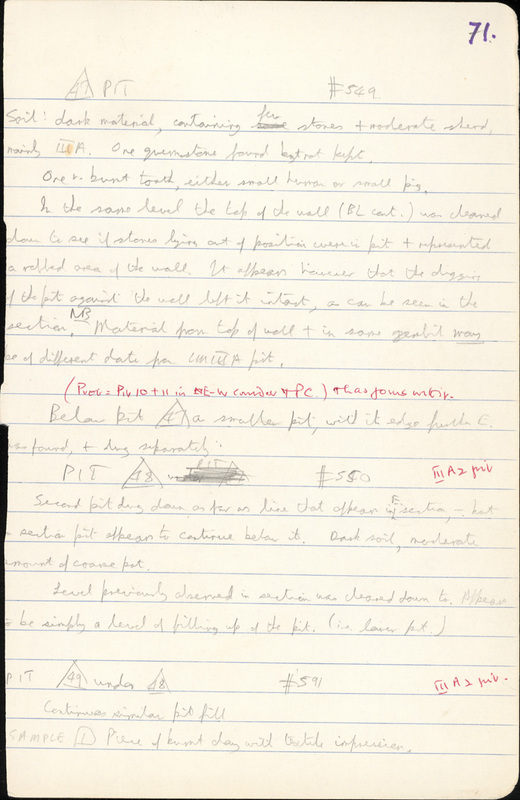 71.
47 PIT #549
Soil: dark material, containing few stones + moderate sherd,
mainly III A. One grindstone found but not kept.
One v. burnt tooth, either small human or small pig.
In the same level the top of the wall (BL cont.) was cleared
down to see if stones lying out of position were in pit + represented
a robbed area of the wall. It appears however that the digging
of the pit against the wall left it intact, as can be seen in the
section. NB Material from top of wall + in same zembil may
be of different date from LMIIIA pit.
(Prob = Piv 10 + 11 in E-W corridor + PC.) + has joins
Below pit 47 a smaller pit, with its edge further E.
was found, + dug separately:
PIT 48 #550 III A2 piv
Second pit dug down as far as line that appears in E section, - but
section pit appears to continue below it. Dark soil, moderate
amount of coarse pot.
Level previously observed in section was cleared down to. Appears
to be simply a level of filling up of the pit. (i.e. lower pit.)
PIT 49 under 48 #591 III A 2 piv.
Continues similar pit fill
SAMPLE 1 Piece of burnt clay with textile impression.